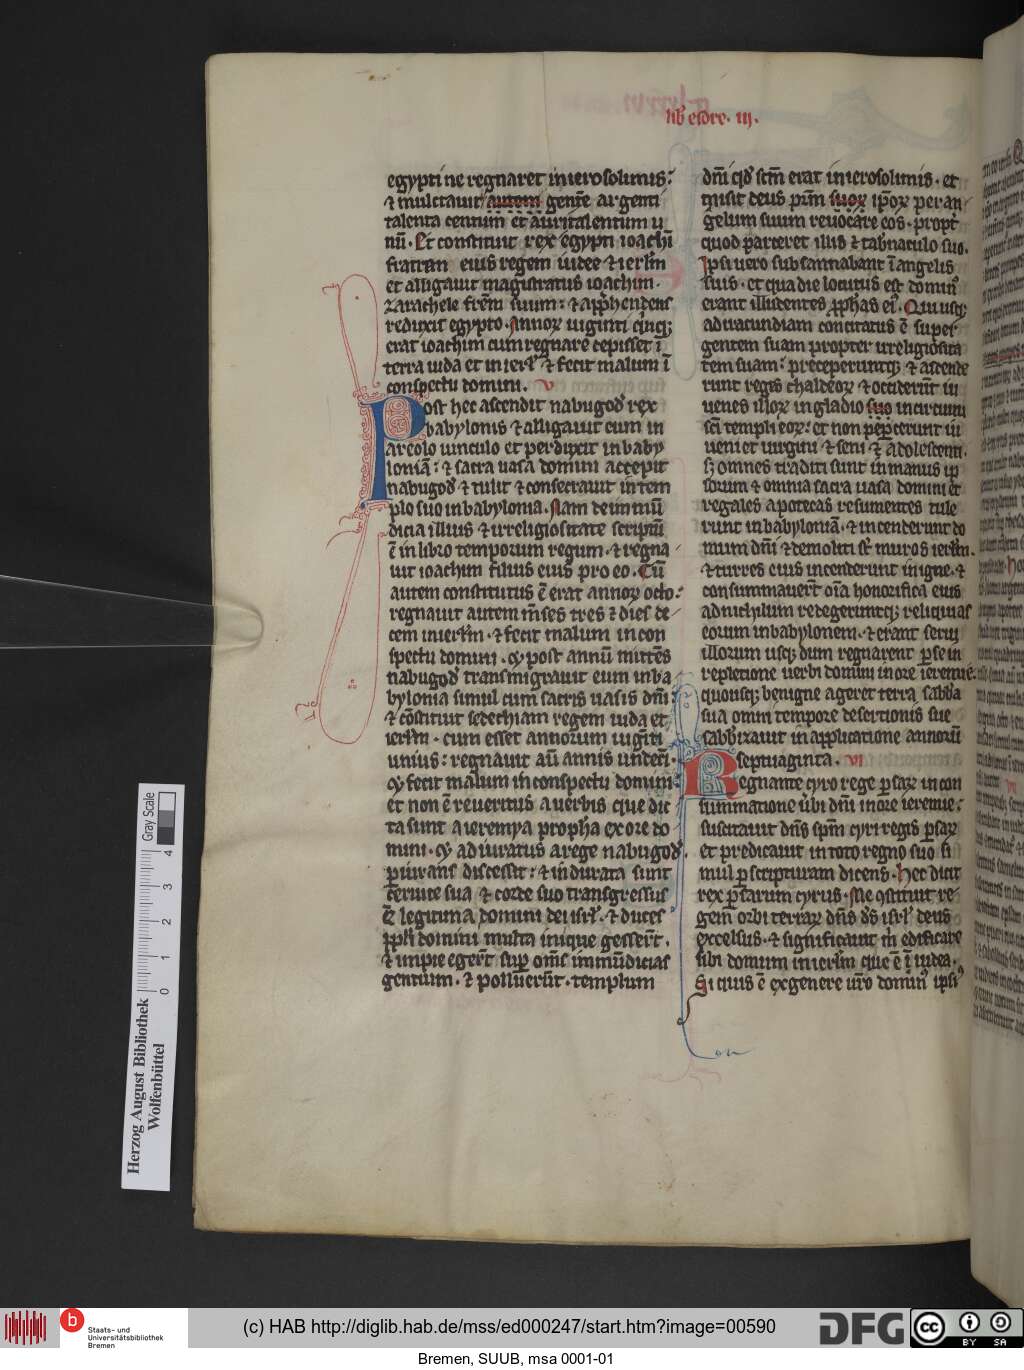 lib̃ esdre. iij.
egypti ne regnaret in ierosolimis:
⁊ mulctauit autem gentẽ argenti
talenta centum et auri talentum u
nũ. Et constituit rex egypti ioachĩ
fratrem eius regem iudee ⁊ ierl̃m
et alligauit magistratus ioachim.
zarachele fr̃em suum: ⁊ app̃hendens
reduxit egypto. Annoꝝ uiginti q̃nq;
erat ioachim cum regnare cepisset ĩ
terra iuda et in ierl̃ ⁊ fecit malum ĩ
conspectu domini. v
Post hec ascendit nabugod̃ rex
babylonis ⁊ alligauit eum in
areolo uinculo et perduxit in baby
loniã: ⁊ sacra uasa domini accepit
nabugod̃ ⁊ tulit ⁊ consecrauit in tem
plo suo in babylonia. Nam de inmũ
dicia illius ⁊ irreligiositate scriptũ
ẽ in libro temporum regum. ⁊ regna
uit ioachim filius eius pro eo. Cũ
autem constitutus ẽ erat annoꝝ octo:
regnauit autem m̃ses tres ⁊ dies de
cem in ierl̃m. ⁊ fecit malum in con
spectu domini. ꝯ post annũ mittẽs
nabugod̃ transmigrauit eum in ba
bylonia simul cum sacris uasis dñi
⁊ cõstituit sedechiam regem iuda et
ierl̃m. cum esset annorum uigĩti
unius: regnauit aũ annis undeci.
ꝯ fecit malum in conspectu domini:
et non ẽ reueritus a uerbis que dic
ta sunt a ieremya propħa ex ore do
mini. ꝯ adiuratus a rege nabugod̃.
ꝑiurans discessit: ⁊ indurata sunt
ceruice sua ⁊ corde suo transgressus
ẽ legitima domini dei isrl̃. ⁊ duces
ppl̃i domini multa inique gesserũt.
⁊ impie egerũt sup̃ om̃s immũdicias
gentium. ⁊ polluerũt. templum
dñi qđ sc̃m erat in ierosolimis. et
misit deus pr̃m suoꝝ ip̃oꝝ per an
gelum suum reuocare eos. propt̃
quod parceret illis ⁊ tab̃naculo suo.
Ipsi uero subsannabant ĩ angelis
suis. et qua die locutus est domin᾽
erant illudentes ꝓpħas ei᾽. Qui usq;
ad iracundiam concitatus ẽ super
gentem suam propter irreligiosita
tem suam: preceperuntq; ⁊ ascende
runt regis chaldeoꝝ ⁊ occiderũt iu
uenes illoꝝ in gladio suo in circuitu
sc̃i templi eoꝝ: et non peꝑcerunt iu
ueni et uirgini ⁊ seni ⁊ adolescenti.
sꝫ omnes traditi sunt in manus ip
sorum ⁊ omnia sacra uasa domini et
regales apotecas resumentes tule
runt in babyloniã. ⁊ incenderunt do
mum dñi ⁊ demoliti st̃ muros ierl̃m.
⁊ turres eius incenderunt in igne. ⁊
consummauerũt oĩa honorifica eius
ad nichilum redegeruntq; reliquias
eorum in babylonem. ⁊ erant serui
illorum usq; dum regnarent ꝑse in
repletione uerbi domini in ore ieremie.
quousq; benigne ageret terra sabb̃a
sua omni tempore desertionis sue
sabb̃izauit in applicatione annorũ
septuaginta. vi
Regnante cyro rege ꝑsaꝝ in con
summatione ũbi dñi in ore ieremie:
suscitauit dñs sp̃m cyri regis ꝑsaꝝ
et predicauit in toto regno suo si
mul ꝑ scripturam dicens. Hec dicit
rex ꝑsarum cyrus. Me ꝯstituit re
gem orbi terraꝝ dñs ds̃ isrl̃ deus
excelsus. ⁊ significauit m̃ edificare
sibi domum in ierl̃m que ẽ ĩ iudea.
Si quis ẽ ex genere ur̃o domin᾽ ipsi᾽
con
Gray Scale
0 1 2 3 4
Herzog August Bibliothek
Wolfenbüttel
b
Staats- und
Universitätsbibliothek
Bremen
(c) HAB http://diglib.hab.de/mss/ed000247/start.htm?image=00590
DFG
cc
BY SA
Bremen, SUUB, msa 0001-01